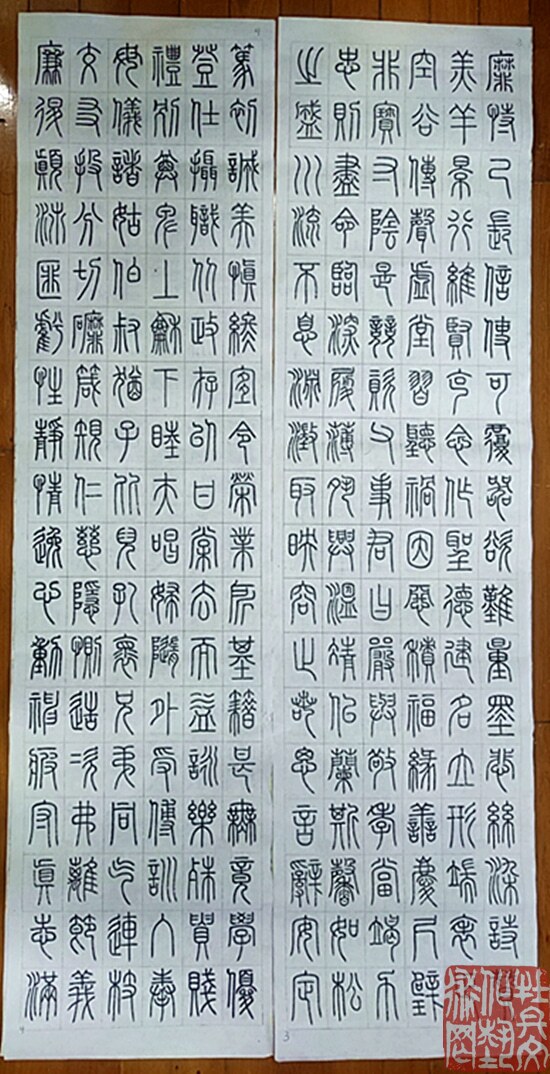 靡恃己長信使可覆器欲難量墨悲絲染詩讚
羔羊景行維賢克念作聖德建名立形端表
空谷傳聲虛堂習聽禍因惡積福緣善慶尺璧
非寶寸陰是競資父事君曰嚴與敬孝當竭力
忠則盡命臨深履薄夙興溫凊似蘭斯馨如松
之盛川流不息淵澄取映容止若思言辭安定
3
4
篤初誠美慎終宜令榮業所基籍甚無竟學優
登仕攝職從政存以甘棠去而益詠樂殊貴賤
禮別尊卑上和下睦夫唱婦隨外受傅訓入奉
母儀諸姑伯叔猶子比兒孔懷兄弟同氣連枝
交友投分切磨箴規仁慈隱惻造次弗離節義
廉退顛沛匪虧性靜情逸心動神疲守真志滿
4